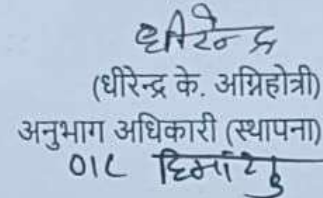 धीरेन्द्र
(धीरेन्द्र के. अग्निहोत्री)
अनुभाग अधिकारी (स्थापना)
O/C हिमांशु